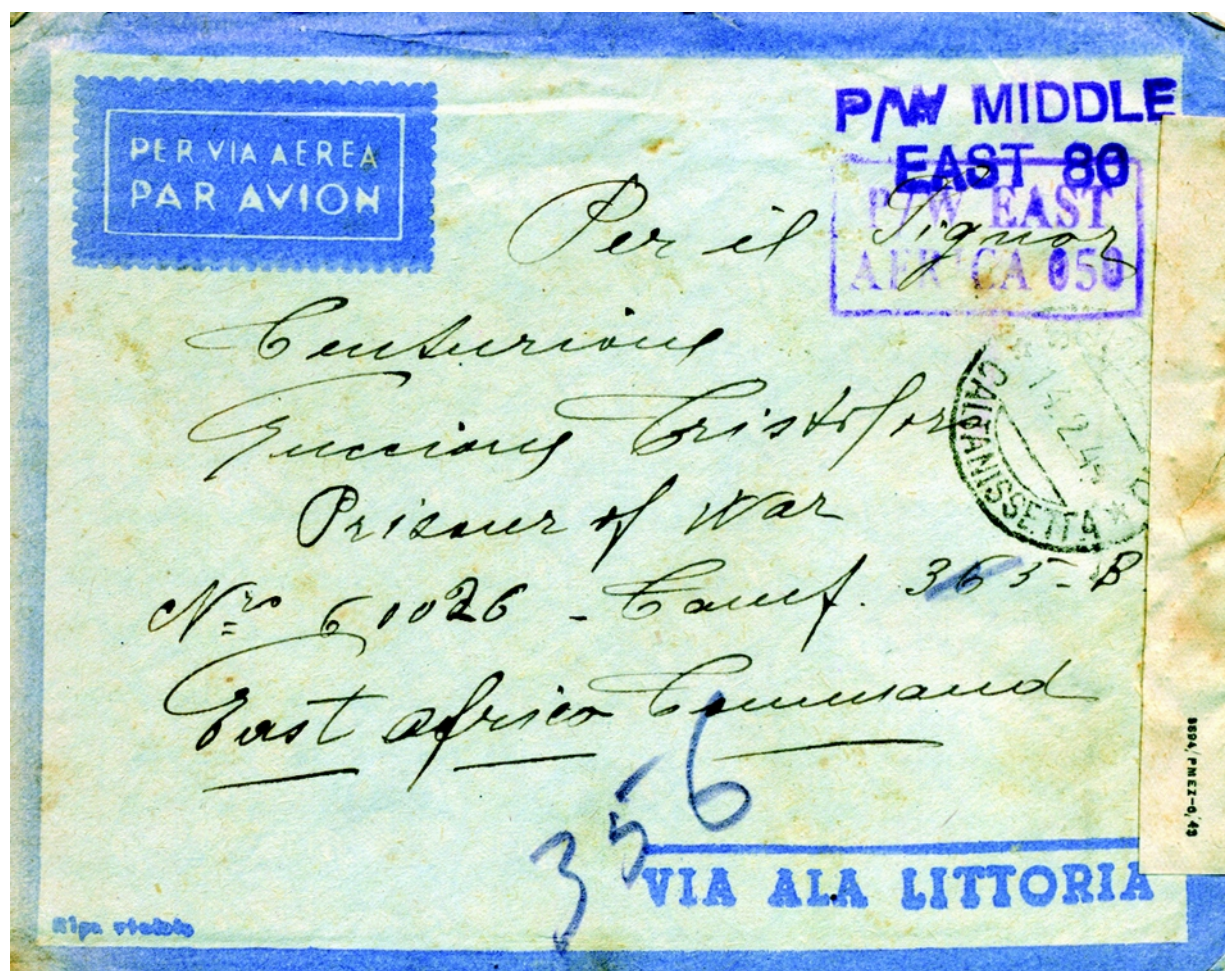 PER VIA AEREA
PAR AVION
P/W MIDDLE
EAST 80
P/W EAST
AFRICA 050
Per il Signor
Centurione
Guccione Cristoforo
Prisoner of War
Nro 61026 - Camp. 365-B.
East Africa Command
CALTANISSETTA
356
VIA ALA LITTORIA